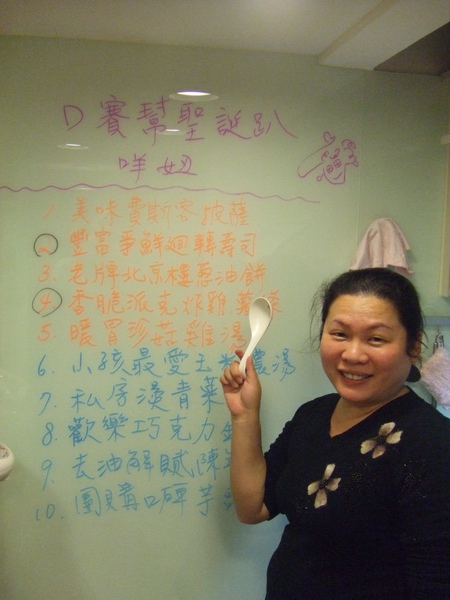 D賽幫聖誕趴
咩妞
1. 美味費斯客披薩
2. 豐富爭鮮迴轉壽司
3. 老牌北京樓蔥油餅
4. 香脆派克炸雞薯條
5. 暖胃珍菇雞湯
6. 小孩最愛玉米濃湯
7. 私房燙青菜
8. 歡樂巧克力
9. 去油解膩陳
10. 團購口碑芋